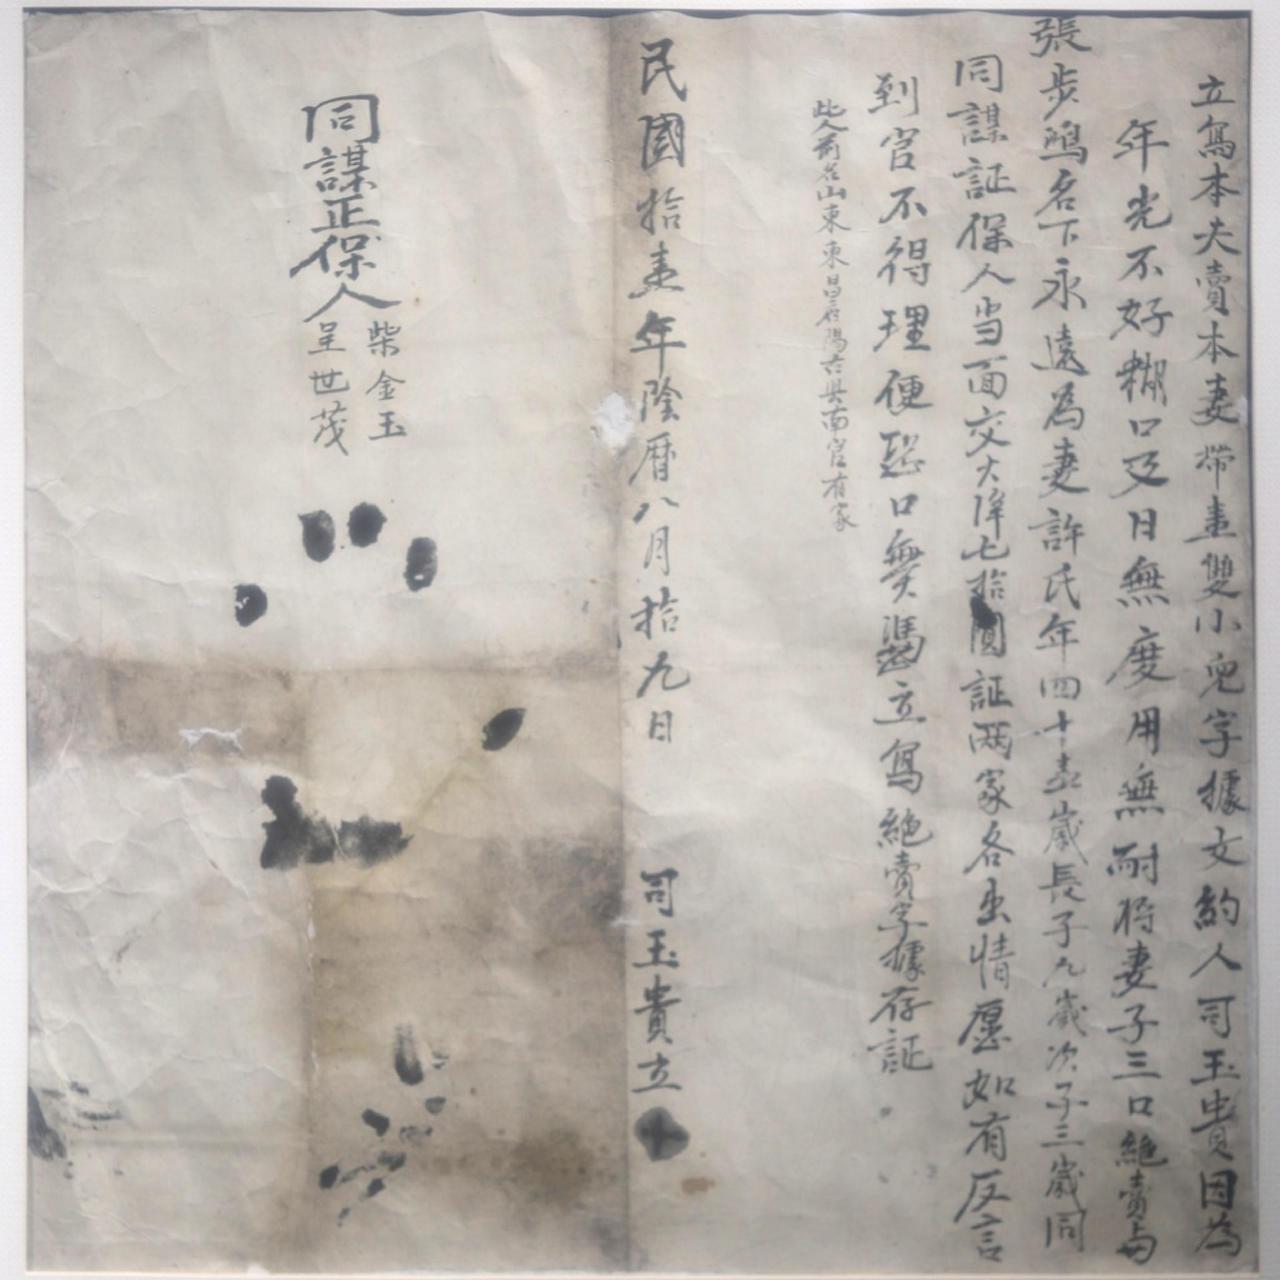 立寫本夫賣本妻帶壹雙小兒字據文約人司玉貴因為
年光不好糊口又日無度用無耐将妻子三口絕賣与
張步鳴名下永遠為妻許氏年四十壹歲長子九歲次子三歲同
同謀証保人当面交大洋七拾圓証両家各出情愿如有反言
到官不得理便恐口無憑立寫絕賣字據存証
此人前名山東東昌府陽古県南官有家
民國拾壹年陰曆八月拾九日 司玉貴立 十
同謀正保人
柴金玉
呈世茂